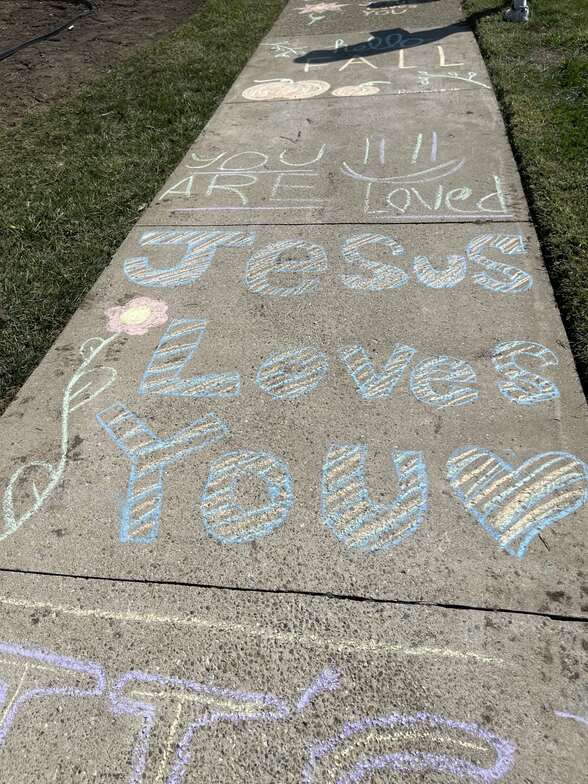 YOU
hello
FALL
YOU
ARE Loved
Jesus
Loves
You